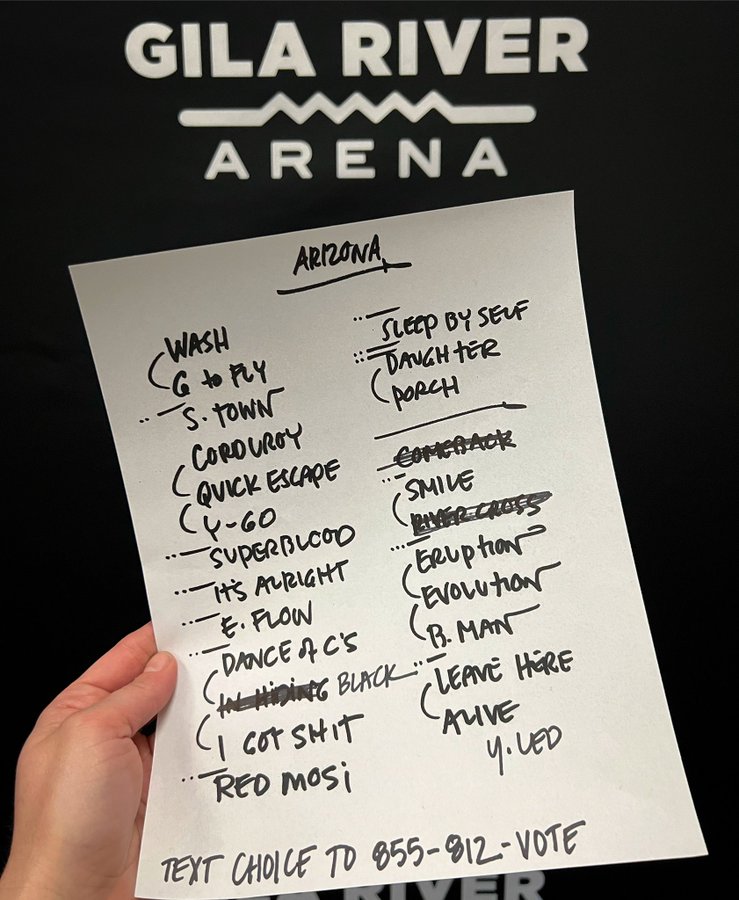 GILA RIVER
ARENA
ARIZONA
WASH
G to FLY
S. TOWN
CORDUROY
QUICK ESCAPE
Y-GO
SUPERBLOOD
IT'S ALRIGHT
E. FLOW
DANCE of C'S
IN HIDING BLACK
I GOT SHIT
RED MOSi
SLEEP BY SELF
DAUGHTER
PORCH
COMEBACK
SMILE
RIVER CROSS
ERUPTION
EVOLUTION
B. MAN
LEAVE HERE
ALIVE
Y. LED
TEXT CHOICE TO 855-812-VOTE
RIVER